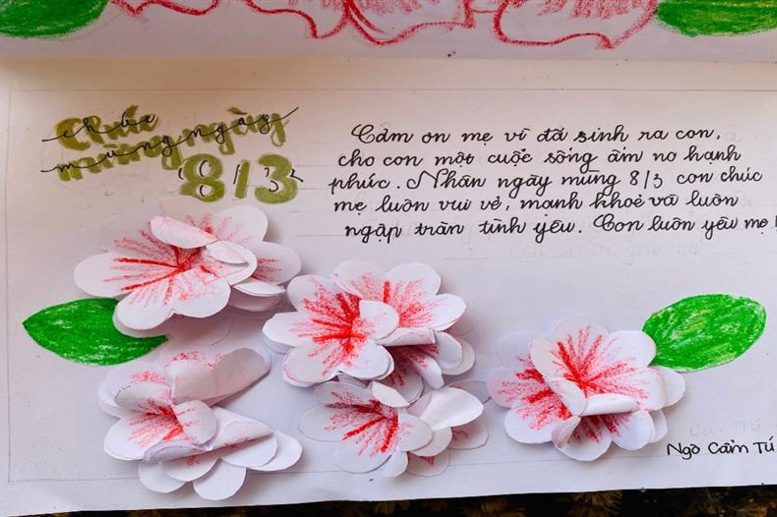 Chúc
mừng ngày
8/3
Cảm ơn mẹ vì đã sinh ra con,
cho con một cuộc sống ấm no hạnh
phúc. Nhân ngày mùng 8/3 con chúc
mẹ luôn vui vẻ, mạnh khoẻ và luôn
ngập tràn tình yêu. Con luôn yêu mẹ!
Ngô Cẩm Tú